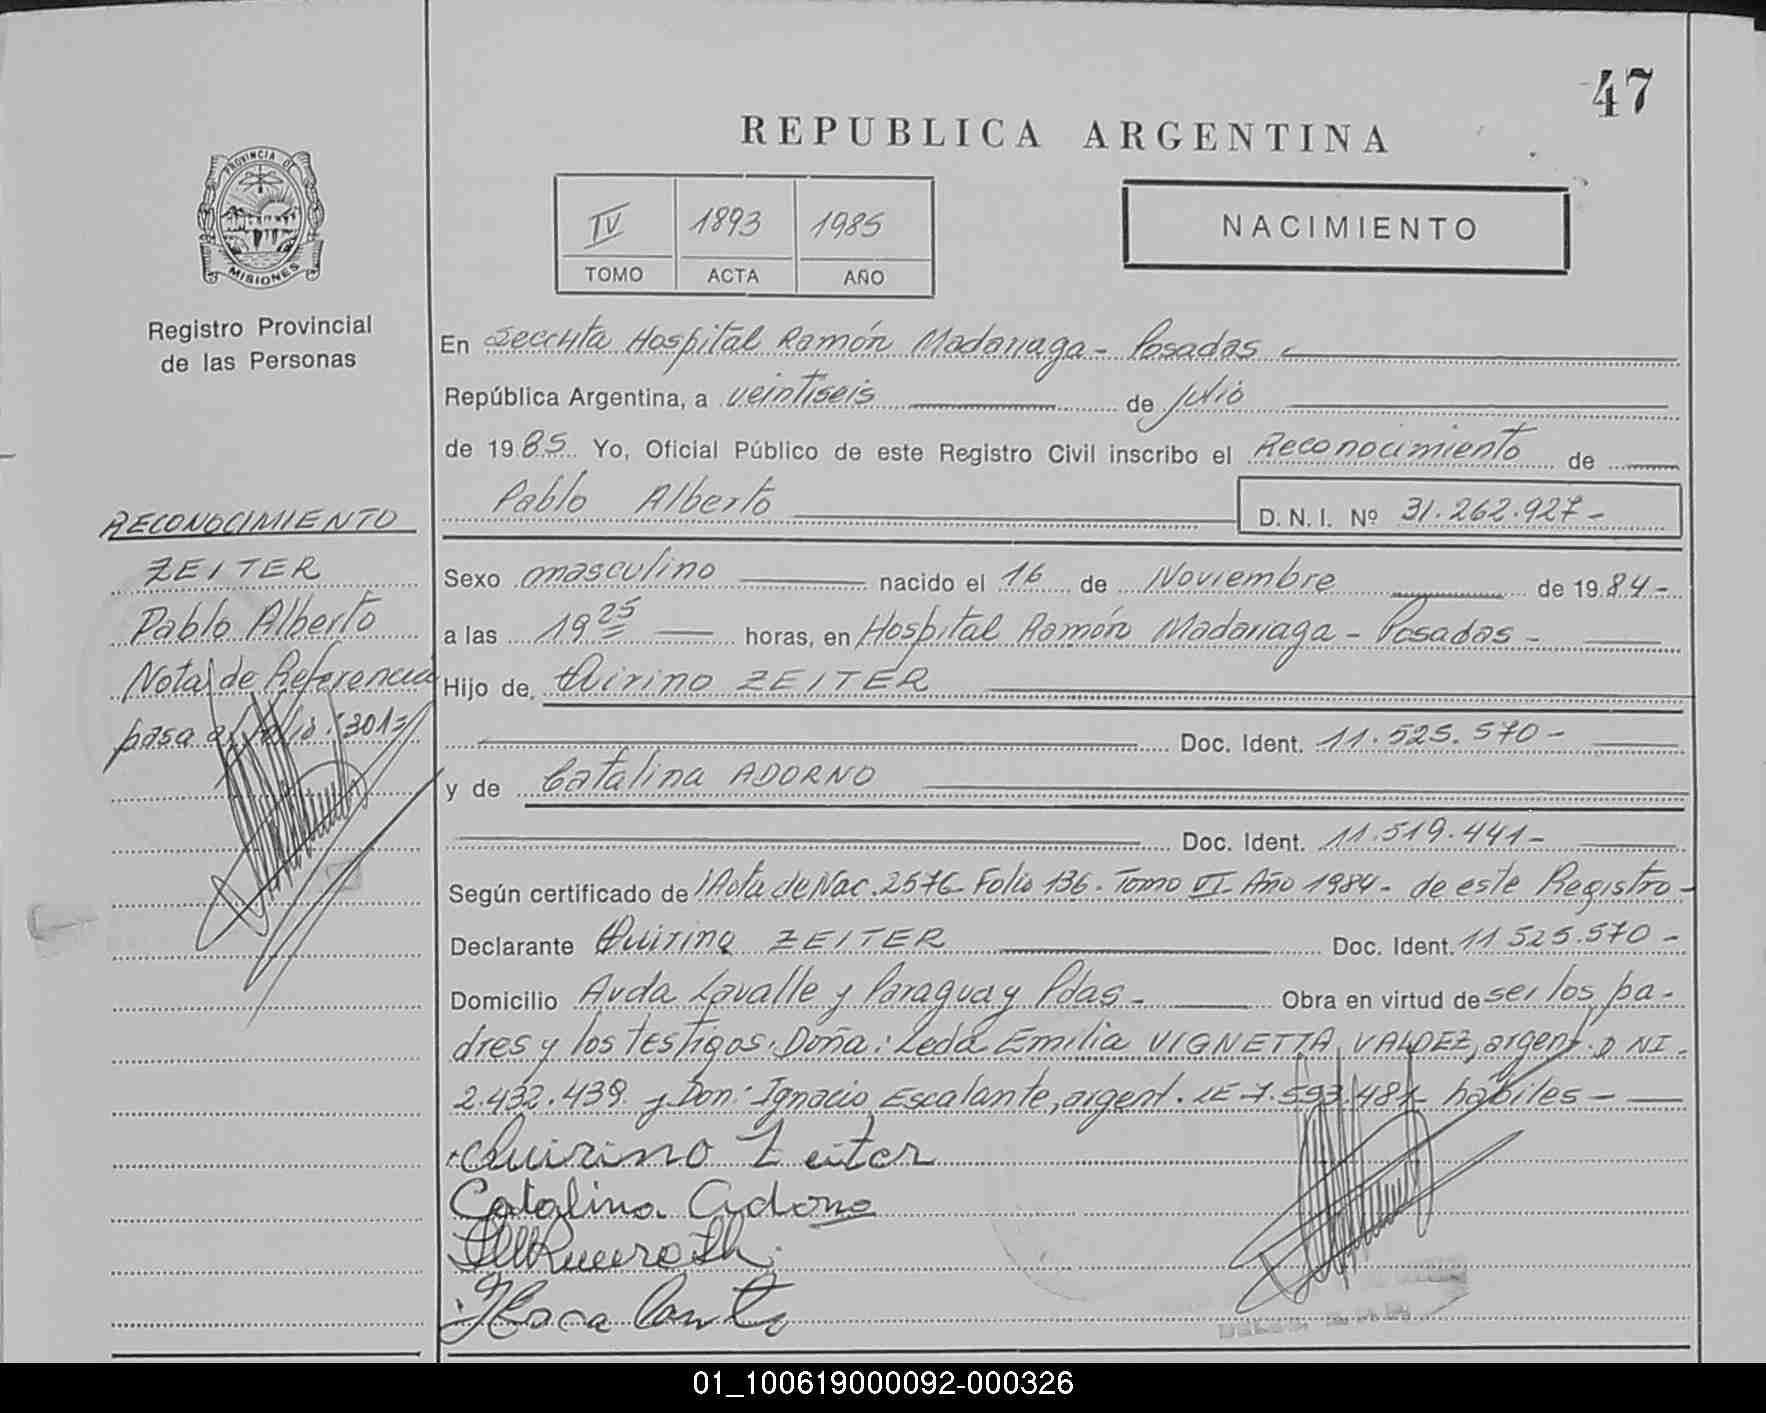 47
REPUBLICA ARGENTINA
PROVINCIA DE
MISIONES
IV 1893 1985
TOMO ACTA AÑO
NACIMIENTO
Registro Provincial
de las Personas
En Hospital Ramón Madariaga - Posadas
República Argentina, a veintiseis de Julio
de 1985. Yo, Oficial Público de este Registro Civil inscribo el Reconocimiento de
Pablo Alberto D. N. I. Nº 31.262.927-
RECONOCIMIENTO
ZEITER
Pablo Alberto
Nota de Referencia
pasa al folio 301
Sexo masculino nacido el 16 de Noviembre de 1984-
a las 19 25 horas, en Hospital Ramón Madariaga - Posadas -
Hijo de Quirino ZEITER
Doc. Ident. 11.525.570-
y de Catalina ADORNO
Doc. Ident. 11.519.441-
Según certificado de Acta de Nac. 2576 Folio 136. Tomo VI Año 1984- de este Registro-
Declarante Quirino ZEITER Doc. Ident. 11 525.570-
Domicilio Avda Lavalle y Paraguay Pdas- Obra en virtud de ser los pa-
dres y los testigos. Doña: Leda Emilia VIGNETTA VALDEZ, argent. D NI.
2.432.439 y Don: Ignacio Escalante, argent. LE 7.593.481 hábiles-
Quirino Zeiter
Catalina Adorno
01_100619000092-000326